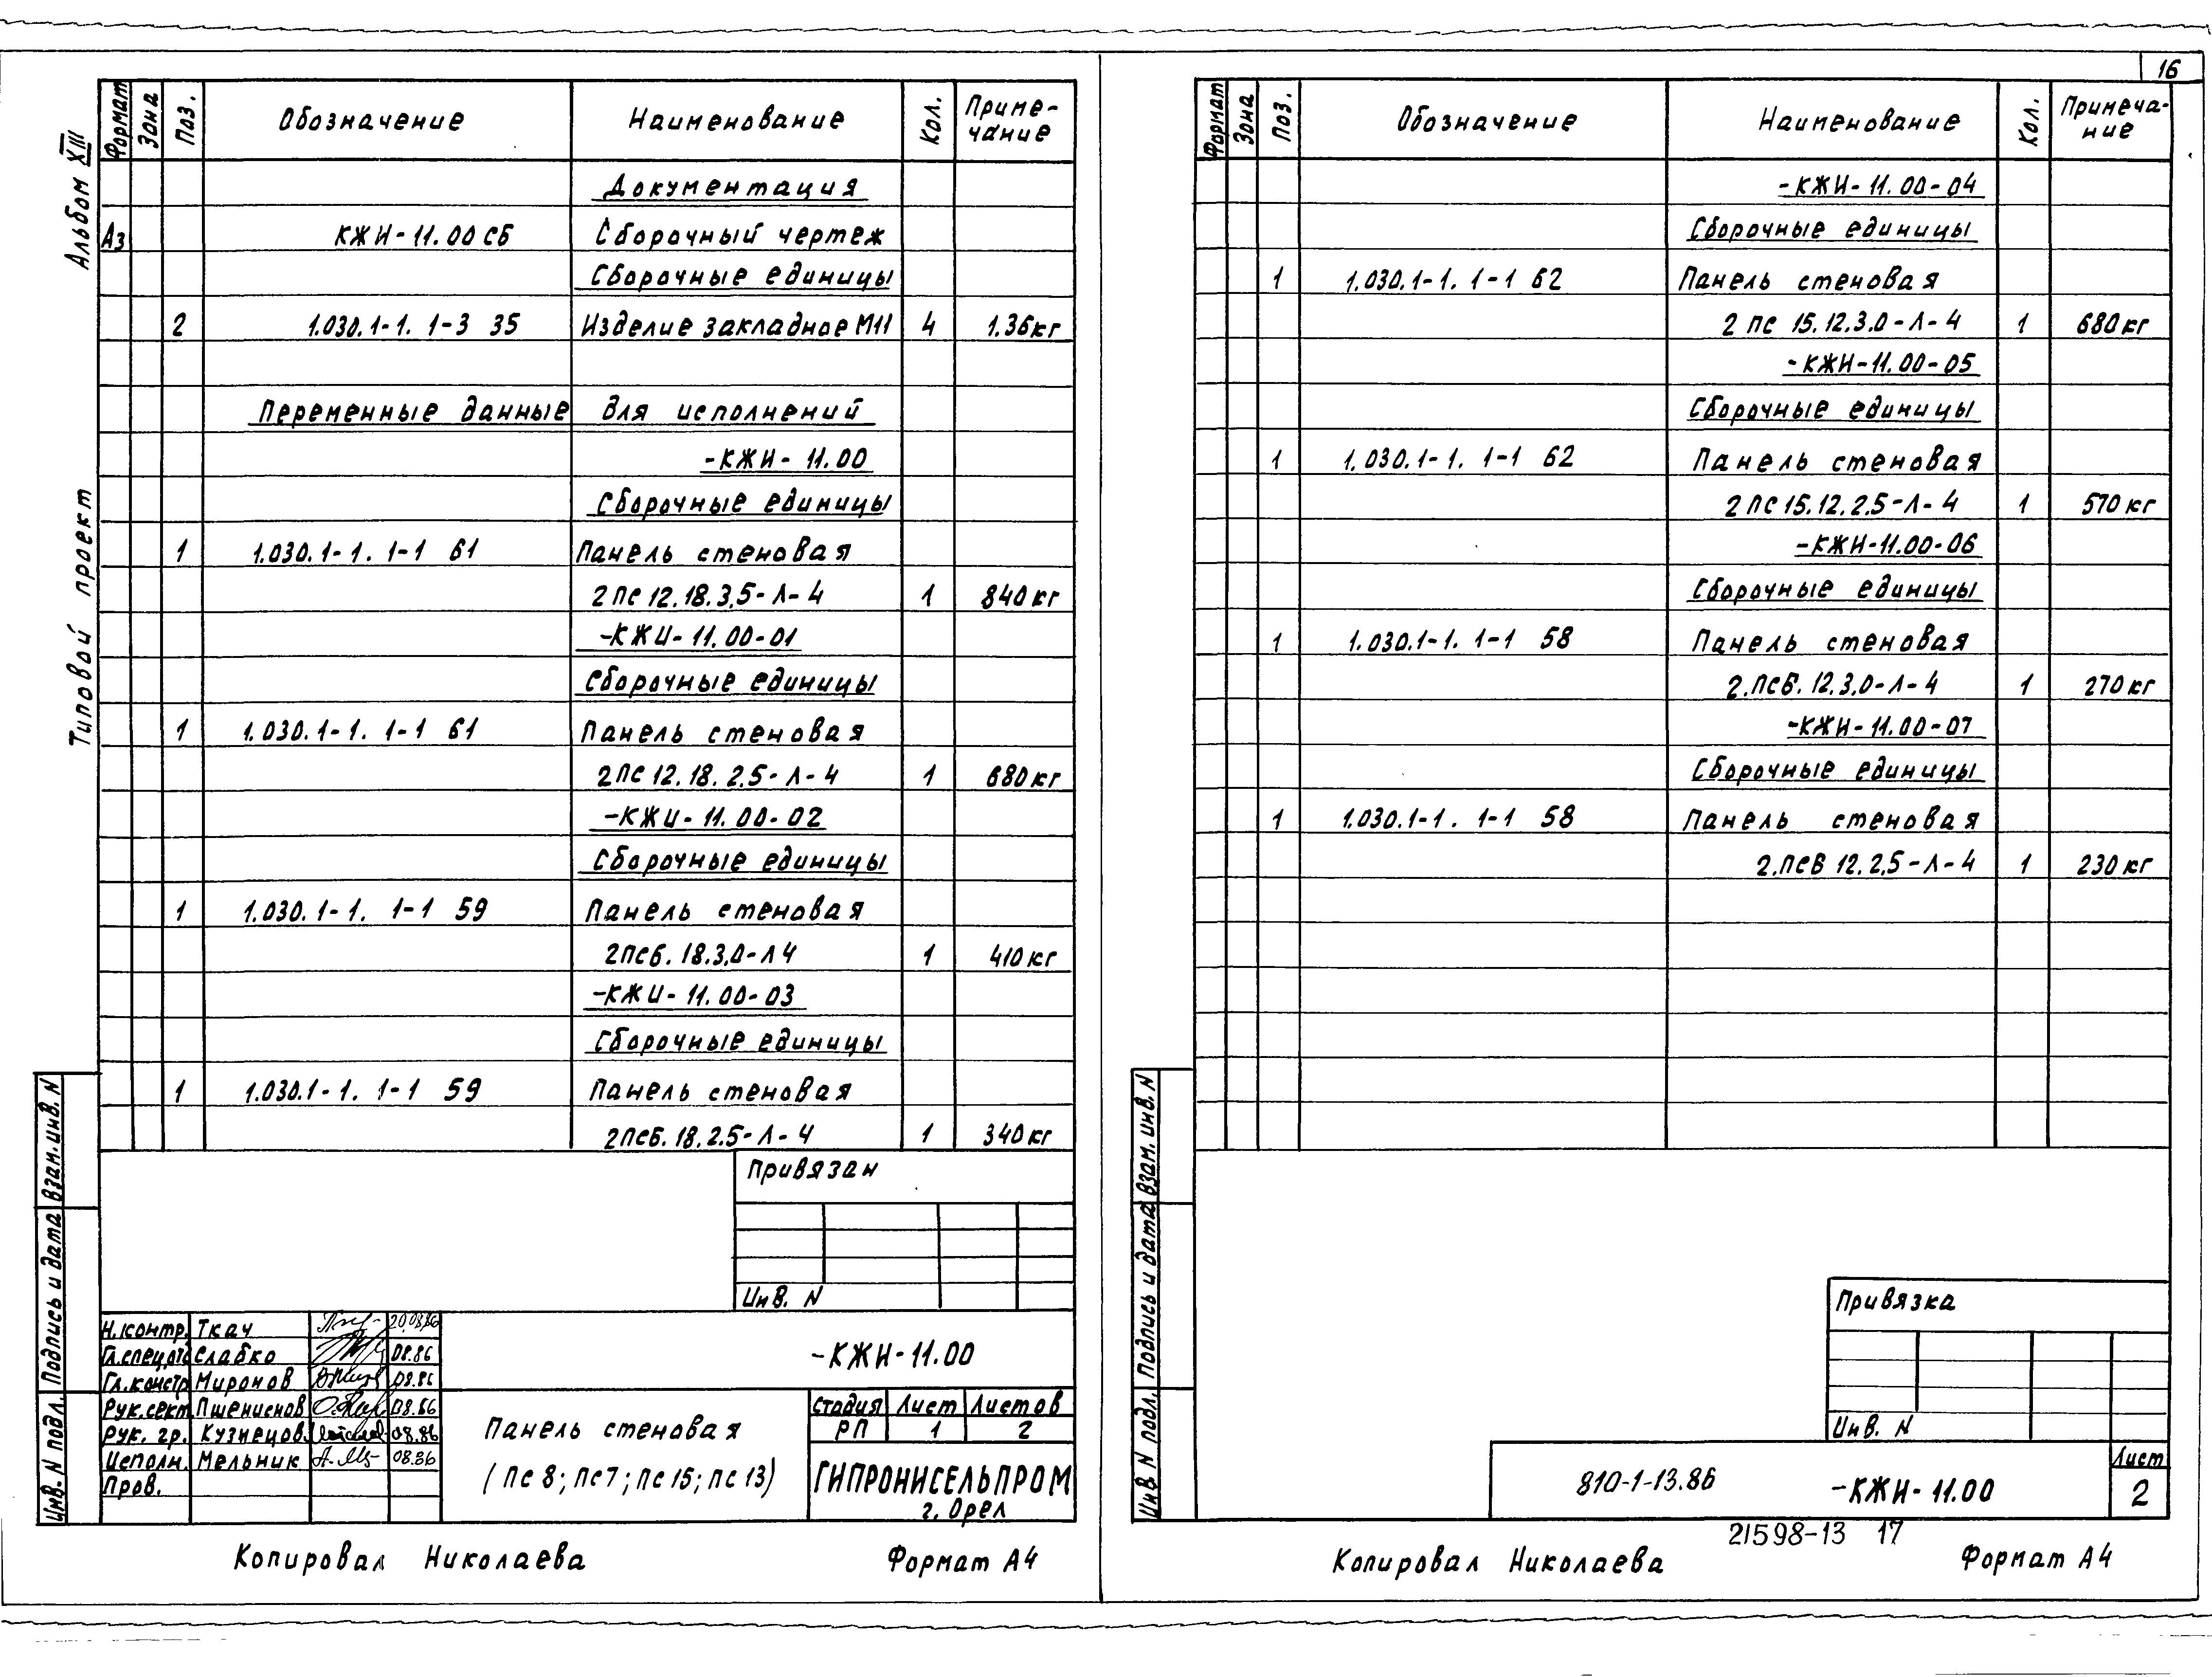 16
Альбом XIII
Типовой проект
Формат Зона Поз. Обозначение Наименование Кол. Приме-
чание
Документация
А3 КЖИ-11.00 СБ Сборочный чертеж
Сборочные единицы
2 1.030.1-1. 1-3 35 Изделие закладное М11 4 1.36кг
Переменные данные для исполнений
-КЖИ-11.00
Сборочные единицы
1 1.030.1-1. 1-1 61 Панель стеновая
2ПС 12.18.3.5-Л-4 1 840кг
-КЖИ-11.00-01
Сборочные единицы
1 1.030.1-1. 1-1 61 Панель стеновая
2ПС 12.18.2.5-Л-4 1 680кг
-КЖИ-11.00-02
Сборочные единицы
1 1.030.1-1. 1-1 59 Панель стеновая
2ПС6.18.3.0-Л4 1 410кг
-КЖИ-11.00-03
Сборочные единицы
1 1.030.1-1. 1-1 59 Панель стеновая
2ПС6.18.2.5-Л-4 1 340кг
Привязан
Инв. N
Взам. инв. N
Подпись и дата
Инв. N подл.
Н.контр. Ткач 20.08.86
Гл.спец.отд Слабко 08.86
Гл.констр Миронов 08.86
Рук.сект. Пшениснов 08.86
Рук. гр. Кузнецов 08.86
Исполн. Мельник 08.86
Пров.
-КЖИ-11.00
Панель стеновая
(ПС 8; ПС7; ПС 15; ПС 13)
Стадия Лист Листов
РП 1 2
ГИПРОНИСЕЛЬПРОМ
г. Орел
Копировал Николаева Формат А4
Формат Зона Поз. Обозначение Наименование Кол. Примеча-
ние
-КЖИ-11.00-04
Сборочные единицы
1 1.030.1-1. 1-1 62 Панель стеновая
2 ПС 15.12.3.0-Л-4 1 680кг
-КЖИ-11.00-05
Сборочные единицы
1 1.030.1-1. 1-1 62 Панель стеновая
2ПС 15.12.2.5-Л-4 1 570кг
-КЖИ-11.00-06
Сборочные единицы
1 1.030.1-1. 1-1 58 Панель стеновая
2.ПС6.12.3.0-Л-4 1 270кг
-КЖИ-11.00-07
Сборочные единицы
1 1.030.1-1. 1-1 58 Панель стеновая
2.ПС6 12.2.5-Л-4 1 230кг
Взам. инв. N
Подпись и дата
Инв N подл.
Привязка
Инв. N
810-1-13.86 -КЖИ-11.00 Лист
2
21598-13 17
Копировал Николаева Формат А4